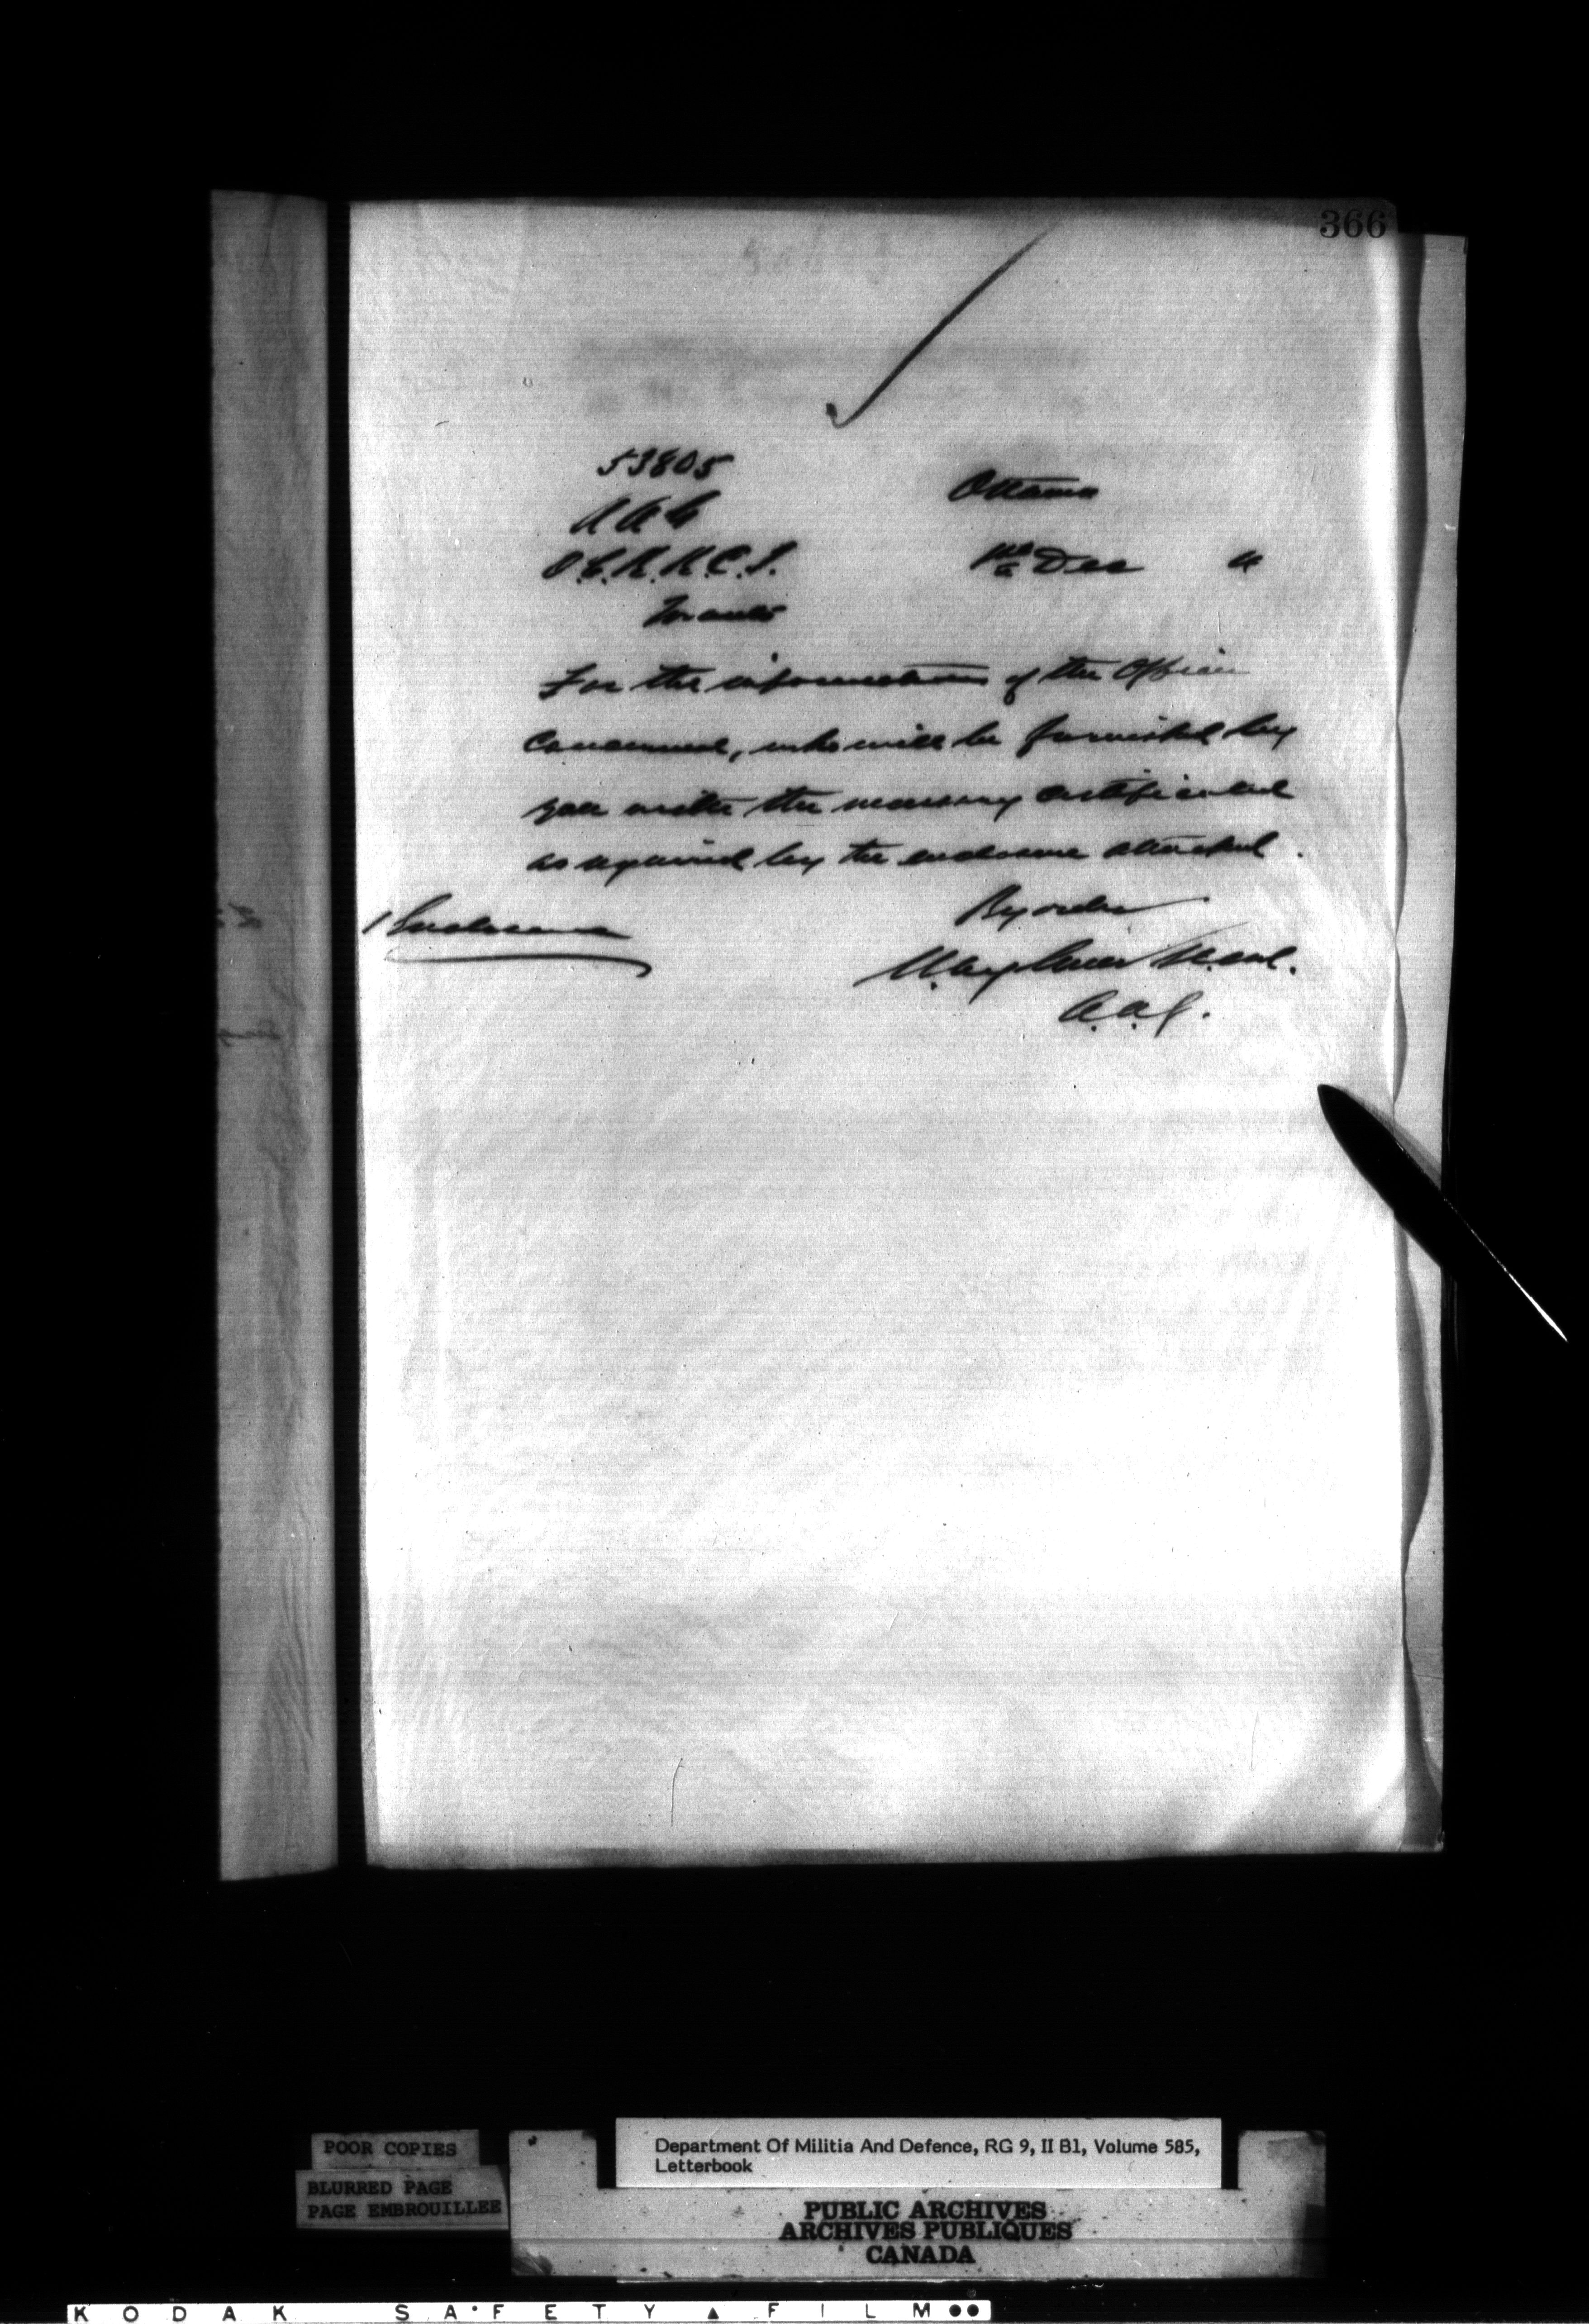 366
53805
Ottawa
O.C.R.R.C.I.
1st Dec "
Toronto
For the information of the Officer
concerned, who will be furnished by
you with the necessary certificate
as required by the enclosure attached.
1 Enclosure
By order
A.A.G.
POOR COPIES
BLURRED PAGE
PAGE EMBROUILLEE
Department Of Militia And Defence, RG 9, II B1, Volume 585,
Letterbook
PUBLIC ARCHIVES
ARCHIVES PUBLIQUES
CANADA
KODAK SAFETY FILM